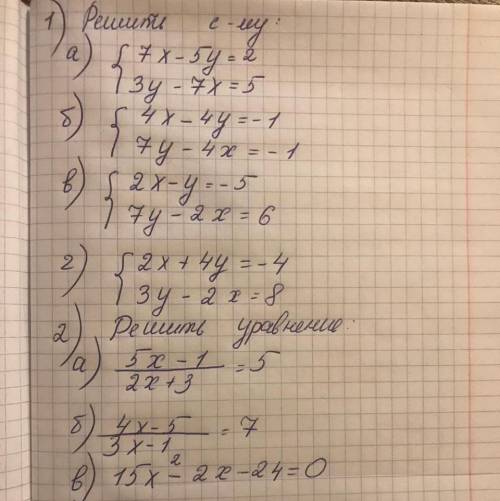 1) Решить с-му:
а) { 7x - 5y = 2
3y - 7x = 5
б) { 4x - 4y = -1
7y - 4x = -1
в) { 2x - y = -5
7y - 2x = 6
г) { 2x + 4y = -4
3y - 2x = 8
2) Решить уравнение:
а) 5x - 1 / 2x + 3 = 5
б) 4x - 5 / 3x - 1 = 7
в) 15x² - 2x - 24 = 0